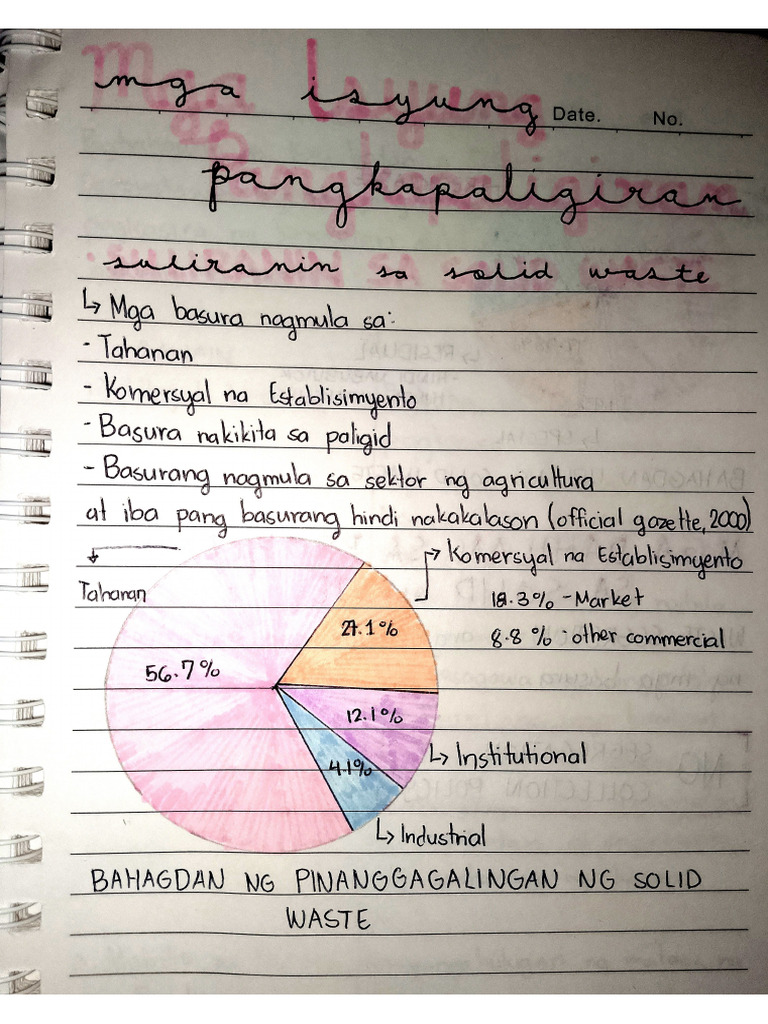 mga isyung
Date. No.
pangkapaligiran
suliranin sa solid waste
↳ Mga basura nagmula sa:
- Tahanan
- Komersyal na Establisimyento
- Basura nakikita sa paligid
- Basurang nagmula sa sektor ng agricultura
at iba pang basurang hindi nakakalason (official gazette, 2000)
Komersyal na Establisimyento
Tahanan
18.3% - Market
27.1%
8.8 % - other commercial
56.7%
12.1%
↳ Institutional
4.1%
↳ Industrial
BAHAGDAN NG PINANGGAGALINGAN NG SOLID
WASTE